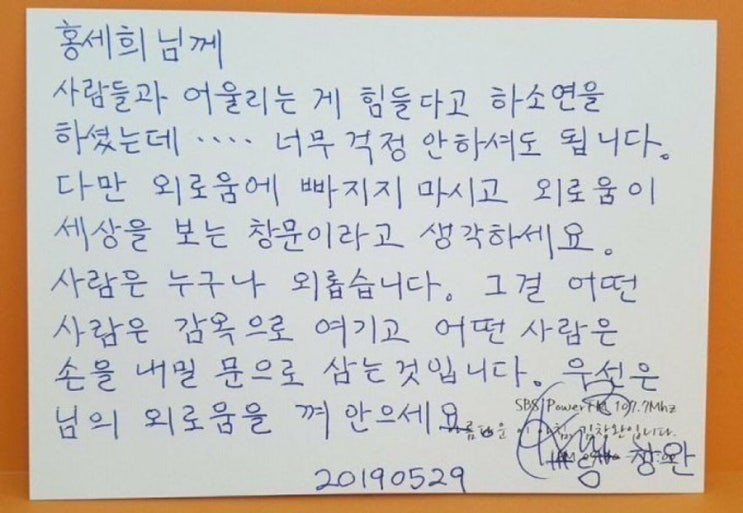 홍세희님께
사람들과 어울리는 게 힘들다고 하소연을
하셨는데 ···· 너무 걱정 안하셔도 됩니다.
다만 외로움에 빠지지 마시고 외로움이
세상을 보는 창문이라고 생각하세요.
사람은 누구나 외롭습니다. 그걸 어떤
사람은 감옥으로 여기고 어떤 사람은
손을 내밀 문으로 삼는것입니다. 우선은
님의 외로움을 껴 안으세요.
SBS PowerFM 107.7Mhz
아름다운 이 아침, 김창완입니다.
창완
20190529